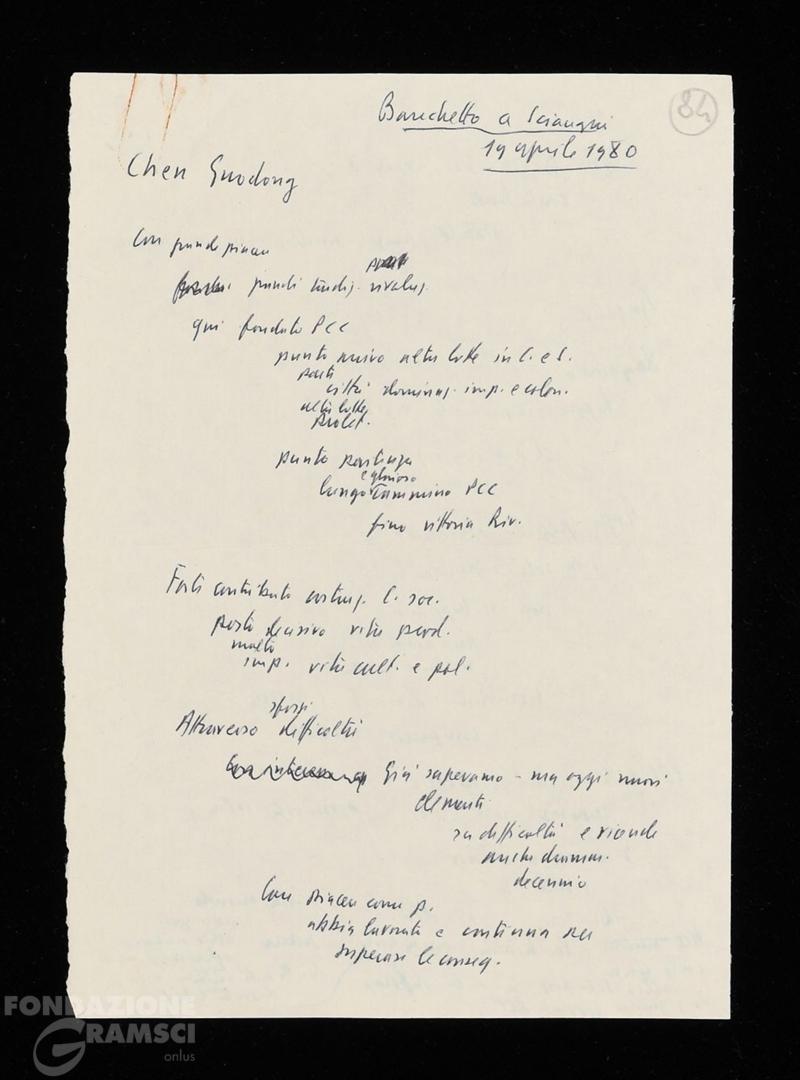 84
Banchetto a Sciangai
19 aprile 1980
Chen Guodong
Con grande piacere
grandi tradiz. rivoluz.
qui fondato PCC
punto nuovo alte lotte in C. e S.
città dominaz. imp. e colon.
alte lotte
prolet.
punto partenza
e glorioso
lungo cammino PCC
fino vittoria Riv.
Forte contributo costruz. C. soc.
posto decisivo vita prod.
molto
imp. vita cult. e pol.
sforzi
Attraverso difficoltà
Già sapevamo - ma oggi nuovi
elementi
su difficoltà e vicende
anche dramm.
decennio
Con piacere come p.
abbia lavorato e continua per
superare le conseg.
FONDAZIONE
GRAMSCI
onlus